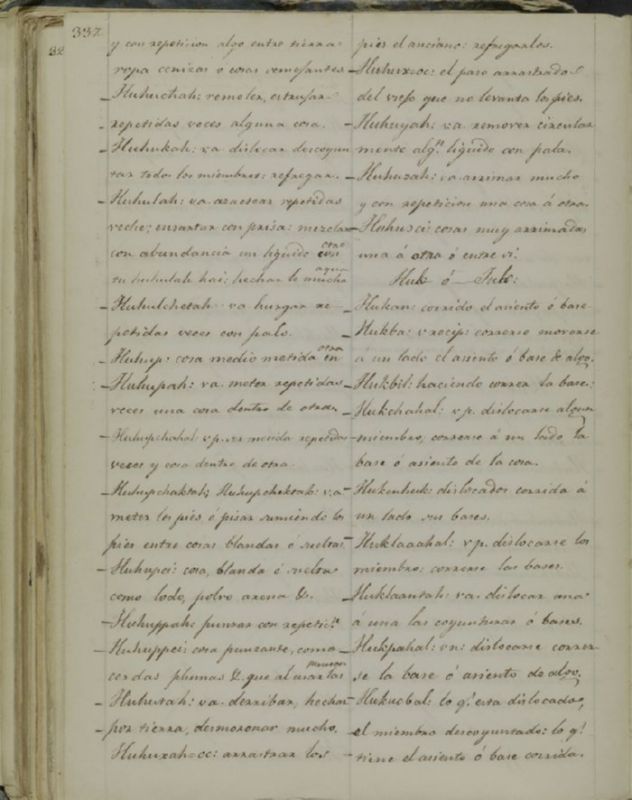 332
32
y con repeticion algo entre tierra
ropa cenizas ó cosas semejantes
Huhuchah: remoler, estrujar
repetidas veces alguna cosa.
Huhukah: va dislocar descoyun
tar todos los miembros: refregar.
Huhulah: va repetidas
veces; ensartar con prisa: mezclar
con abundancia un liquido con otro
tu huhulah hai; hechar le mucha agua
Huhulchetah va hurgar re
petidas veces con palo.
Huhup: cosa medio metida en otra
Huhupah: va. meter repetidas
veces una cosa dentro de otra.
Huhupchahal vp. ser metida repetidas
veces y cosa dentro de otra.
Huhupchaktah; Huhupchektah: va
meter los pies ó pisar sumiendo los
pies entre cosas blandas ó sueltas
Huhupci: cosa, blanda ó suelta
como lodo, polvo arena &.
Huhuppah: punzar con repeticⁿ.
Huhuppci: cosa punzante, como
cerdas plumas &. que al usarlas punzan
Huhutah: va. derribar, hechar
por tierra, desmoronar mucho.
Huhuxah-oc: arrastrar los
pies el anciano: refregarlos.
Huhux-oc: el paso arrastrado
del viejo que no levanta los pies.
Huhuyah: va. remover circular
mente algⁿ. liquido con pala.
Huhuzah: va. arrimar mucho
y con repeticion una cosa á otra.
Huhuzci: cosas muy arrimadas
una á otra ó entre sí.
Huk ó
Hukan: corrido el asiento ó base
Hukba: v recip: correrse moverse
á un lado el asiento ó base de algo.
Hukbil: haciendo correr la base:
Hukchahal: vp. dislocarse algun
miembro, correrse á un lado la
base ó asiento de la cosa.
Hukenhuk: dislocados corrida á
un lado sus bases.
Huklaahal: vp. dislocarse los
miembro: correrse las bases.
Huklaantah: va. dislocar una
á una las coyunturas ó bases.
Hukpahal: vn: dislocarse correr
se la base ó asiento de algo.
Hukucbal: lo qᵉ. esta dislocado,
el miembro descoyuntado: lo qᵉ.
tiene el asiento ó base corrida.